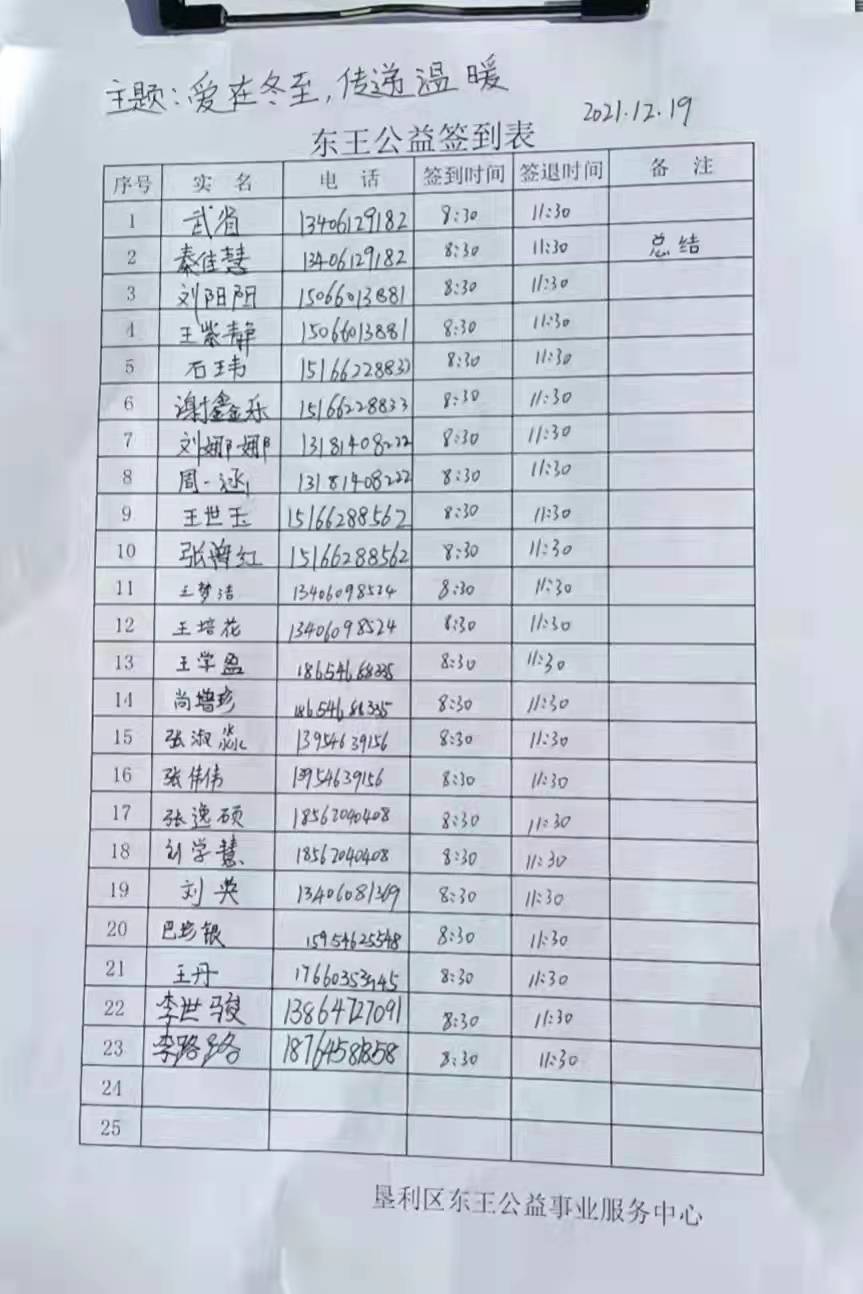 主题:爱在冬至,传递温暖
2021.12.19
东王公益签到表
序号 实名 电话 签到时间 签退时间 备注
1 武省 13406129182 8:30 11:30
2 秦佳慧 13406129182 8:30 11:30 总结
3 刘阳阳 15066013881 8:30 11:30
4 王紫静 15066013881 8:30 11:30
5 石玮 15166228833 8:30 11:30
6 谢鑫乐 15166228833 8:30 11:30
7 刘娜娜 13181408222 8:30 11:30
8 周一 13181408222 8:30 11:30
9 王世玉 15166288562 8:30 11:30
10 张增红 15166288562 8:30 11:30
11 王梦洁 13406098524 8:30 11:30
12 王培花 13406098524 8:30 11:30
13 王学盈 18654688335 8:30 11:30
14 尚增珍 18654688335 8:30 11:30
15 张淑淼 13954639156 8:30 11:30
16 张伟伟 13954639156 8:30 11:30
17 张逸硕 18562040408 8:30 11:30
18 刘学慧 18562040408 8:30 11:30
19 刘英 13406081369 8:30 11:30
20 巴珍银 15954625548 8:30 11:30
21 王丹 17660353945 8:30 11:30
22 李世骏 13864727091 8:30 11:30
23 李路路 18764581858 8:30 11:30
24
25
垦利区东王公益事业服务中心